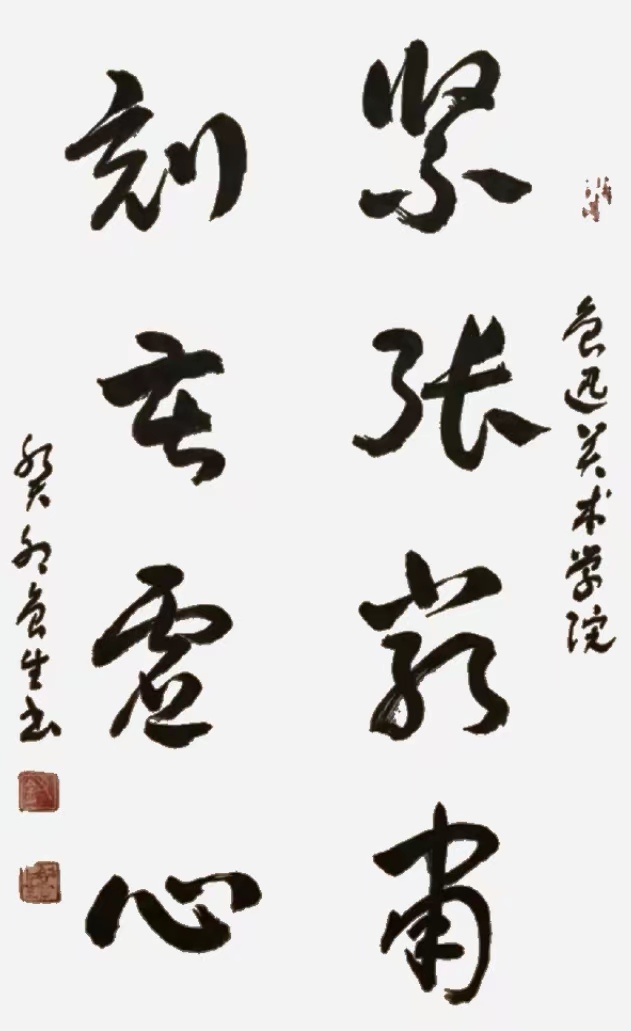 鲁迅美术学院
紧张严肃
刻苦虚心
癸卯鲁生书